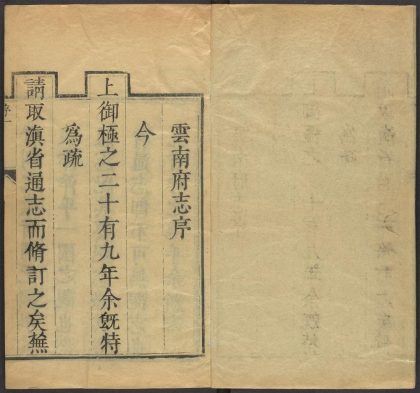 雲南府志序
今
上御極之二十有九年余旣特
爲疏
請取滇省通志而脩訂之矣蕪